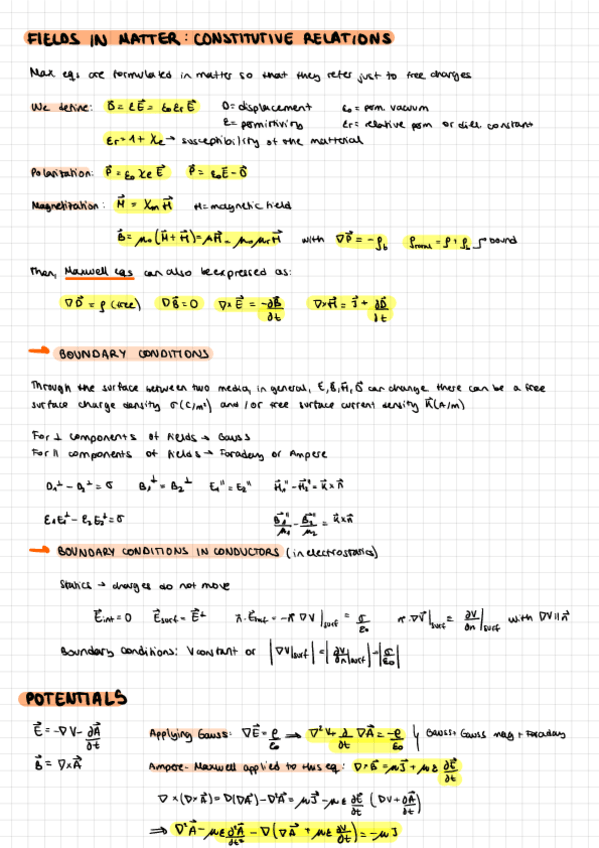 FIELDS IN MATTER: CONSTITUTIVE RELATIONS
Max eqs are formulated in matter so that they refer just to free charges
We define: D⃗ = εE⃗ = ε₀εᵣE⃗ D = displacement ε₀ = perm. vacuum
ε = permittivity εᵣ = relative perm or diel. constant
εᵣ = 1 + χₑ → susceptibility of the material
Polarization: P⃗ = ε₀ χₑ E⃗ P⃗ = ε₀E⃗ - D⃗
Magnetization: M⃗ = χₘ H⃗ H = magnetic field
B⃗ = μ₀(H⃗ + M⃗) = μH⃗ = μ₀μᵣH⃗ with ∇P⃗ = -ρb ρtotal = ρ + ρb bound
Then, Maxwell eqs can also be expressed as:
∇D⃗ = ρ (free) ∇B⃗ = 0 ∇×E⃗ = -∂B⃗/∂t ∇×H⃗ = J⃗ + ∂D⃗/∂t
→ BOUNDARY CONDITIONS
Through the surface between two media, in general, E⃗, B⃗, H⃗, D⃗ can change. there can be a free
surface charge density σ(C/m²) and/or free surface current density K⃗(A/m)
For ⊥ components of fields → Gauss
For || components of fields → Faraday or Ampere
D₁⊥ - D₂⊥ = σ B₁⊥ = B₂⊥ E₁" = E₂" H⃗₁" - H⃗₂" = K⃗×n⃗
ε₁E₁⊥ - ε₂E₂⊥ = σ B⃗₁"/μ₁ - B⃗₂"/μ₂ = K⃗×n⃗
→ BOUNDARY CONDITIONS IN CONDUCTORS (in electrostatics)
Statics → charges do not move
E⃗int = 0 E⃗surf = E⃗⊥ n⃗·E⃗surf = -n⃗ ∇V|surf = σ/ε₀ n⃗·∇V|surf = ∂V/∂n|surf with ∇V || n⃗
Boundary conditions: V constant or |∇V|surf| = |∂V/∂n|surf| = |σ/ε₀|
POTENTIALS
E⃗ = -∇V - ∂A⃗/∂t Applying Gauss: ∇E⃗ = ρ/ε₀ ⟹ ∇²V + ∂/∂t ∇A⃗ = -ρ/ε₀ Gauss + Gauss mag + Faraday
B⃗ = ∇×A⃗ Ampere-Maxwell applied to this eq: ∇×B⃗ = μJ⃗ + με ∂E⃗/∂t
∇×(∇×A⃗) = ∇(∇A⃗) - ∇²A⃗ = μJ⃗ - με ∂/∂t (∇V + ∂A⃗/∂t)
⟹ ∇²A⃗ - με ∂²A⃗/∂t² - ∇(∇A⃗ + με ∂V/∂t) = -μJ